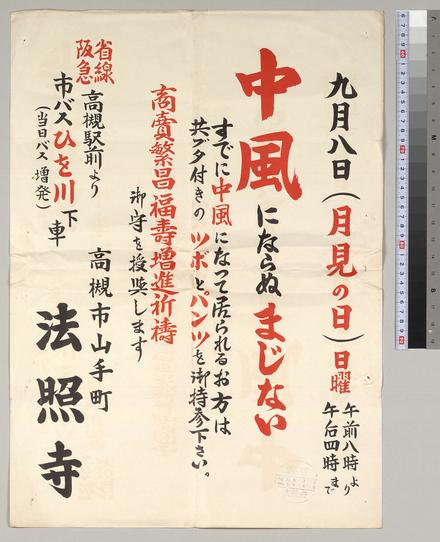 九月八日(月見の日)日曜
午前八時より
午后四時まで
中風にならぬまじない
すでに中風になって居られるお方は
共ブタ付きのツボとパンツを御持参下さい。
商賣繁昌福壽増進祈禱
御守を授與します
省線
阪急
高槻駅前より
市バスひを川下車
(当日バス増発)
高槻市山手町
法照寺